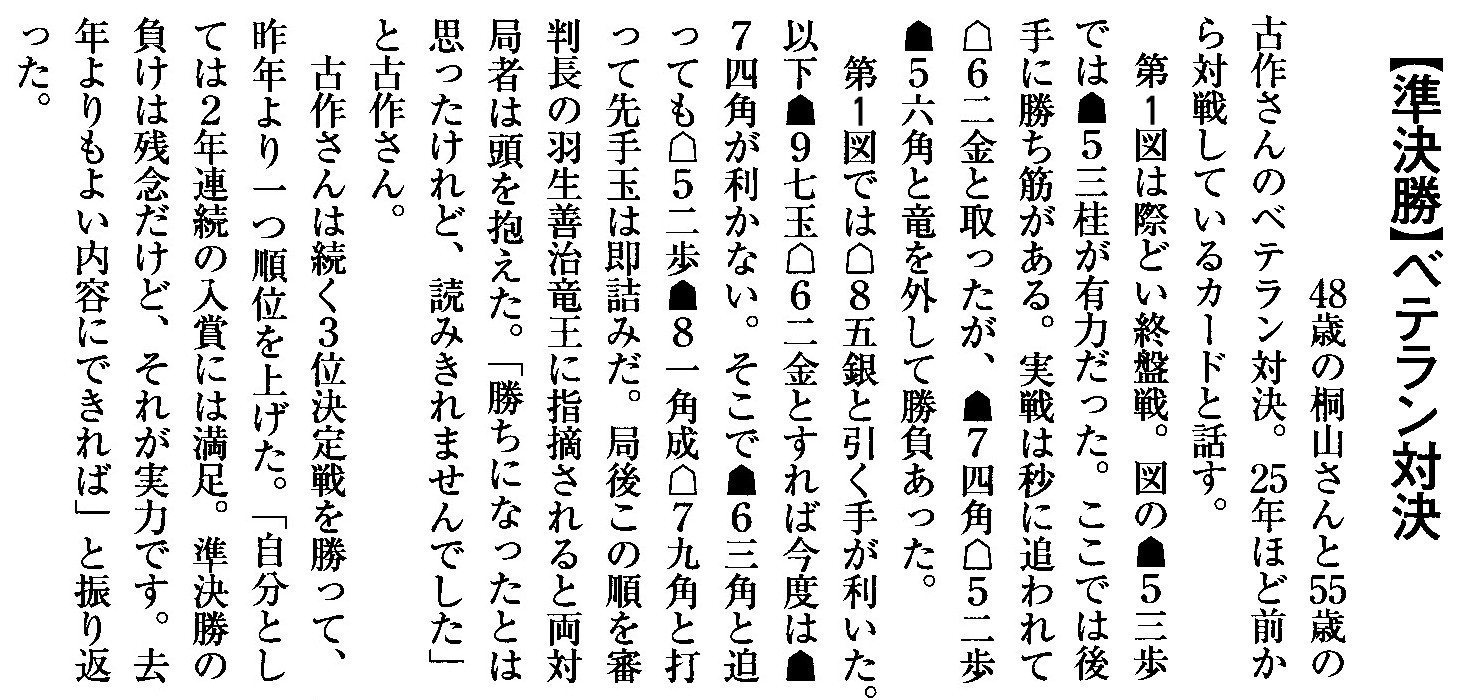 【準決勝】ベテラン対決
48歳の桐山さんと55歳の
古作さんのベテラン対決。25年ほど前か
ら対戦しているカードと話す。
第1図は際どい終盤戦。図の☗5三歩
では☗5三桂が有力だった。ここでは後
手に勝ち筋がある。実戦は秒に追われて
☖6二金と取ったが、☗7四角☖5二歩
☗5六角と竜を外して勝負あった。
第1図では☖8五銀と引く手が利いた。
以下☗9七玉☖6二金とすれば今度は☗
7四角が利かない。そこで☗6三角と追
っても☖5二歩☗8一角成☖7九角と打
って先手玉は即詰みだ。局後この順を審
判長の羽生善治竜王に指摘されると両対
局者は頭を抱えた。「勝ちになったとは
思ったけれど、読みきれませんでした」
と古作さん。
古作さんは続く3位決定戦を勝って、
昨年より一つ順位を上げた。「自分とし
ては2年連続の入賞には満足。準決勝の
負けは残念だけど、それが実力です。去
年よりもよい内容にできれば」と振り返
った。